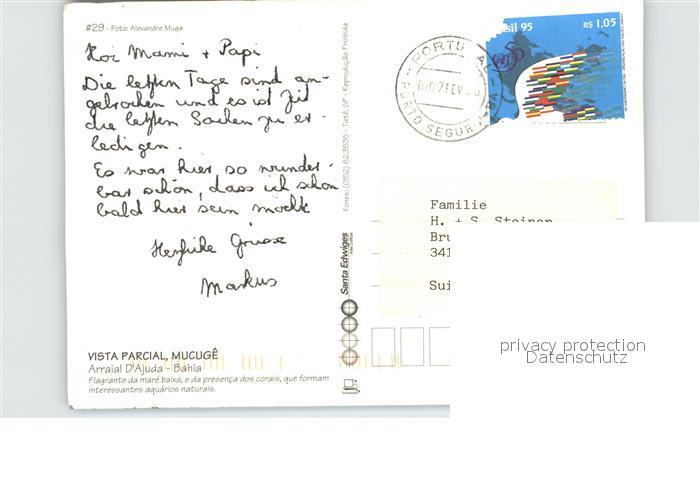 #29 - Foto: Alexandre Muga
Hoi Mami + Papi
Die letzten Tage sind an-
gebrochen und es ist Zeit
die letzten Sachen zu er-
ledigen.
Es war hier so wunder-
bar schön, dass ich schon
bald hier sein möchte
Herzliche Grüsse
Markus
VISTA PARCIAL, MUCUGÊ
Arraial D'Ajuda - Bahia
Flagrante da maré baixa, e da presença dos corais, que formam
interessantes aquários naturais.
Santa Edwiges
Fones: (0152) 82.3535 - Tietê, SP - Reprodução Proibida
sil 95
R$ 1,05
PORTO SEGUR
Familie
H. + S. Steiner
Bru
341
Sui
privacy protection
Datenschutz